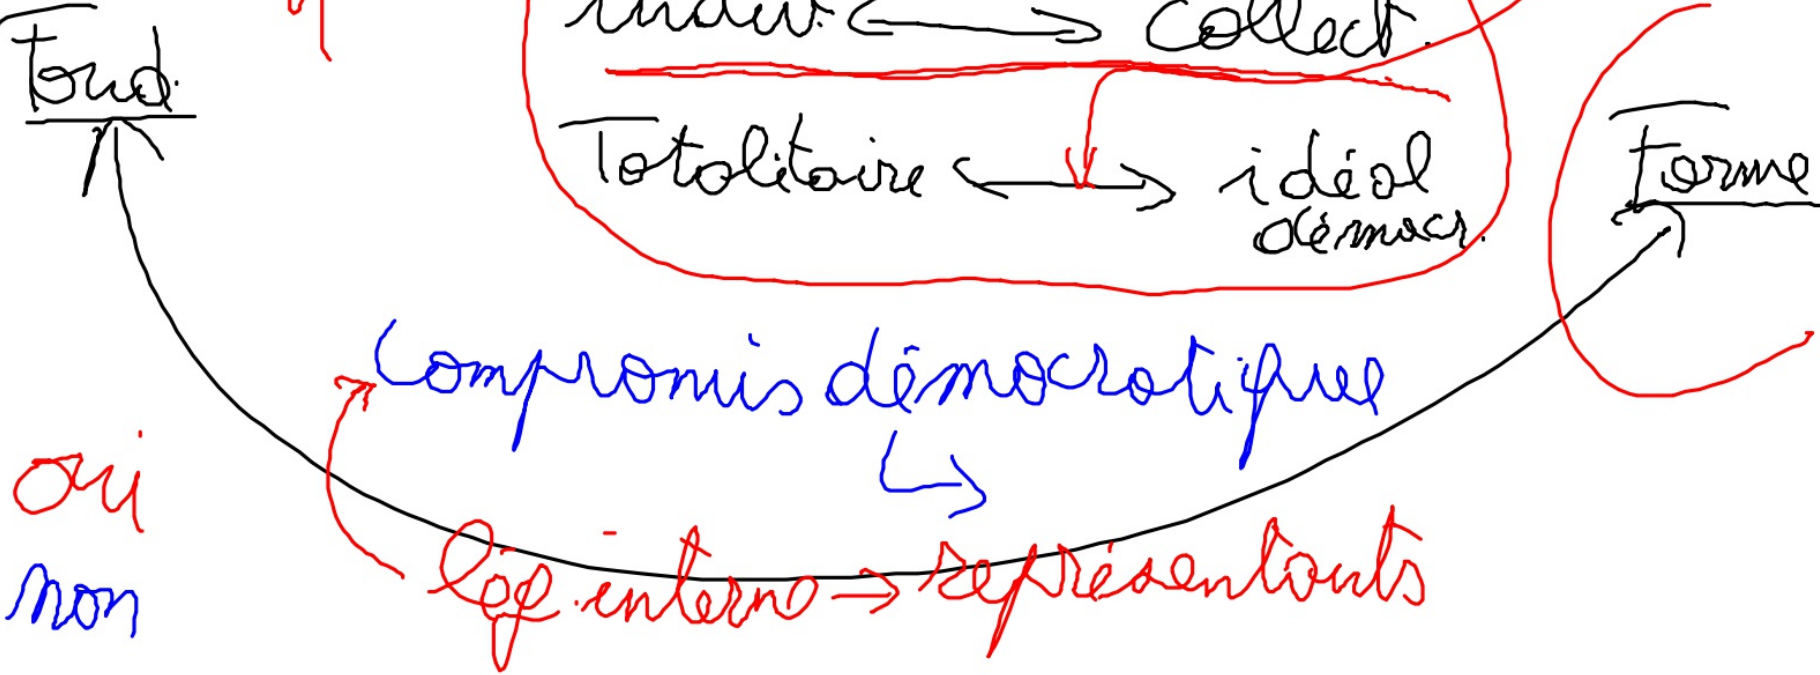 indiv. ⟷ Collect.
Fond.
Totalitaire ⟷ idéol
démocr.
Forme
Compromis démocratique
oui
lég. interno → représentants
non